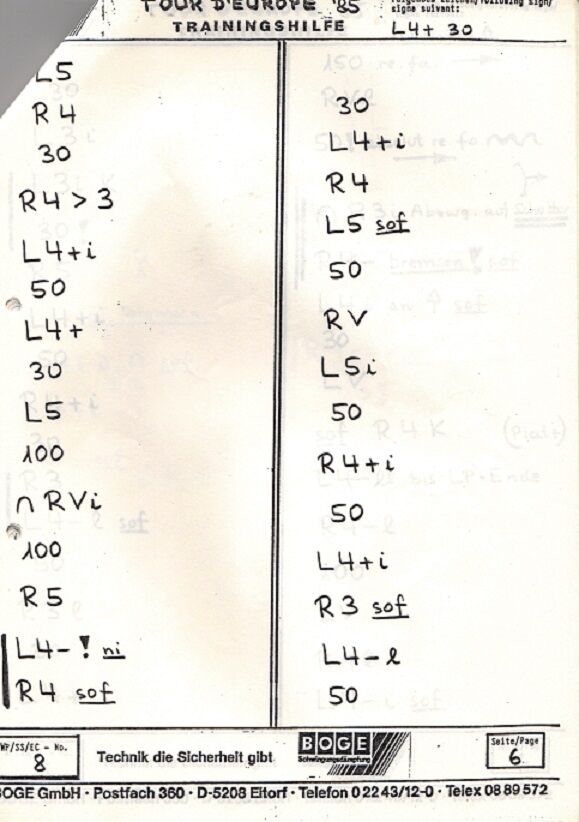 TOUR D'EUROPE '85
TRAININGSHILFE
signe suivant:
L4+ 30
L5
R4
30
R4 > 3
L4+i
50
L4+
30
L5
100
∩ RVi
100
R5
L4-! ni
R4 sof
30
L4+i
R4
L5 sof
50
RV
L5i
50
R4+i
50
L4+i
R3 sof
L4-l
50
WP/SS/EC - No.
8
Technik die Sicherheit gibt
BOGE
Schwingungsdämpfung
Seite/Page
6
BOGE GmbH · Postfach 360 · D-5208 Eitorf · Telefon 0 22 43/12-0 · Telex 08 89 572